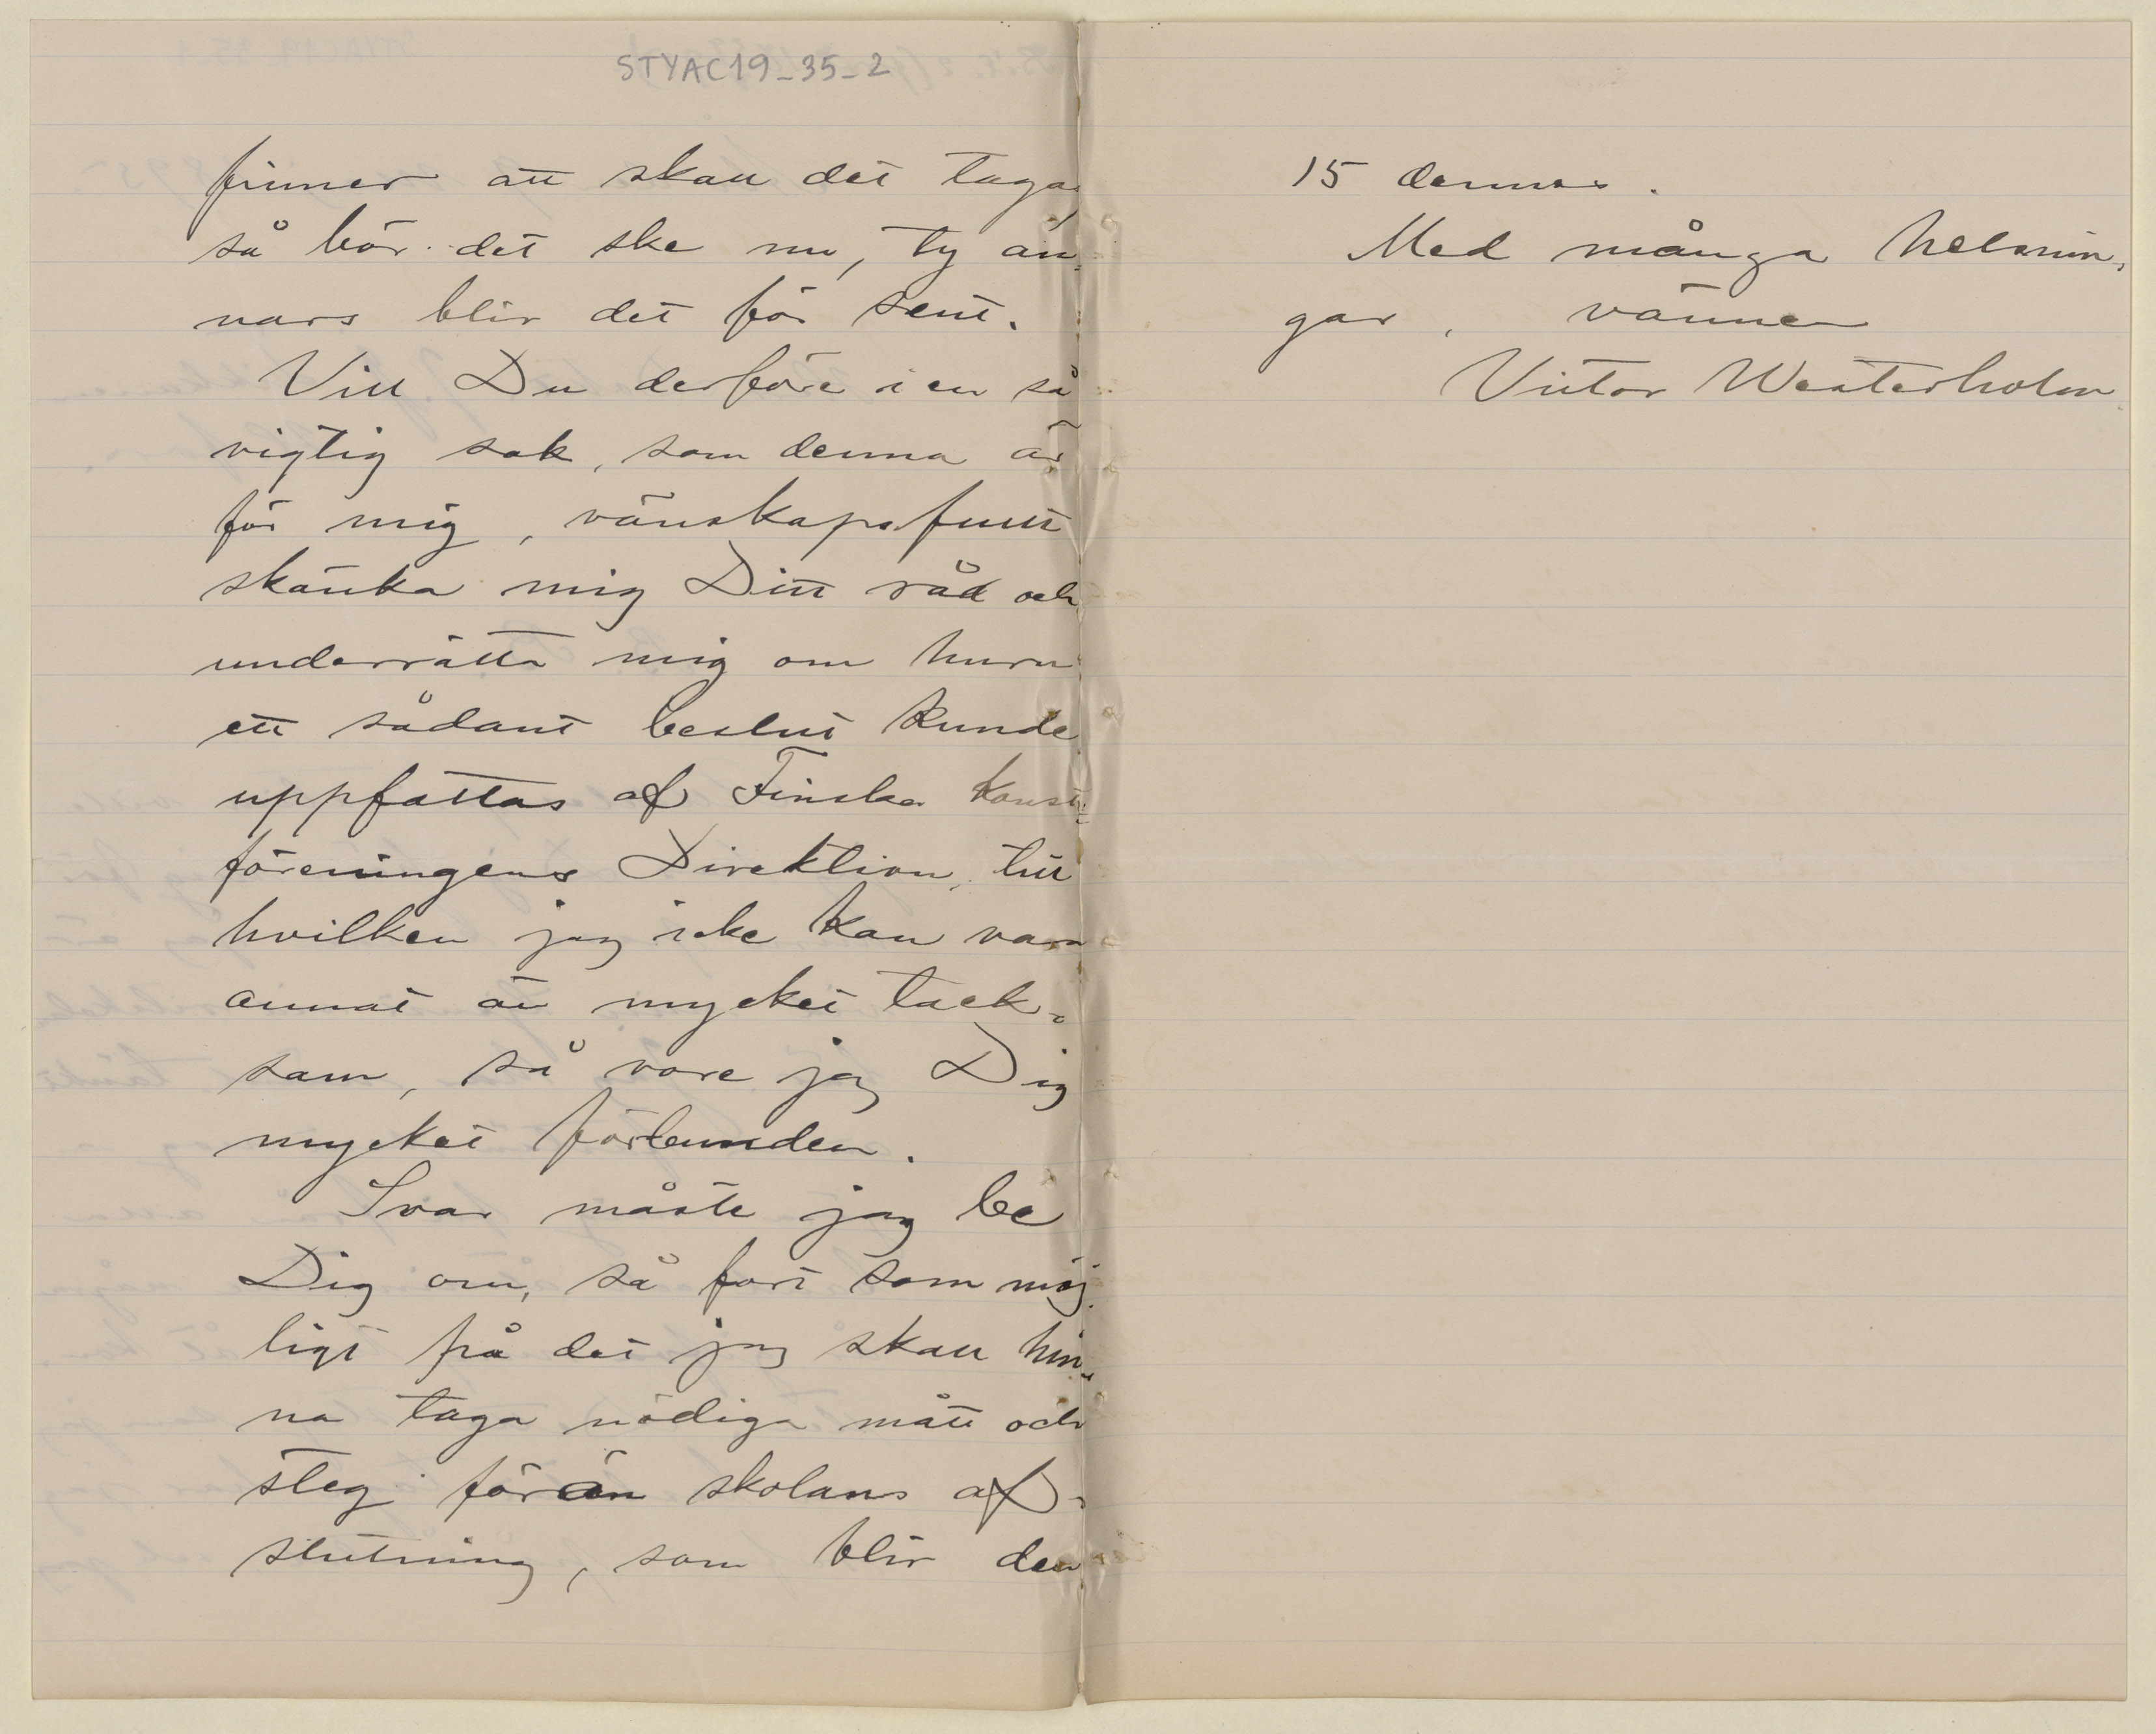 STYAC19_35_2
finner att skall det taga,
så bör det ske nu, ty an=
nars blir det för sent.
Vill Du derföre i en så
vigtig sak, som denna är
för mig, vänskapsfullt
skänka mig Ditt råd och
underrätta mig om huru
ett sådant beslut kunde
uppfattas af Finska Konst=
föreningens Direktion, till
hvilken jag icke kan vara
annat än mycket tack=
sam, så vore jag Dig
mycket förbunden.
Svar måste jag be
Dig om, så fort som möj=
ligt på det jag skall hin=
na taga nödiga mått och
steg förän skolans af=
slutning, som blir den
15 dennes.
Med många helsnin=
gar, vännen
Victor Westerholm